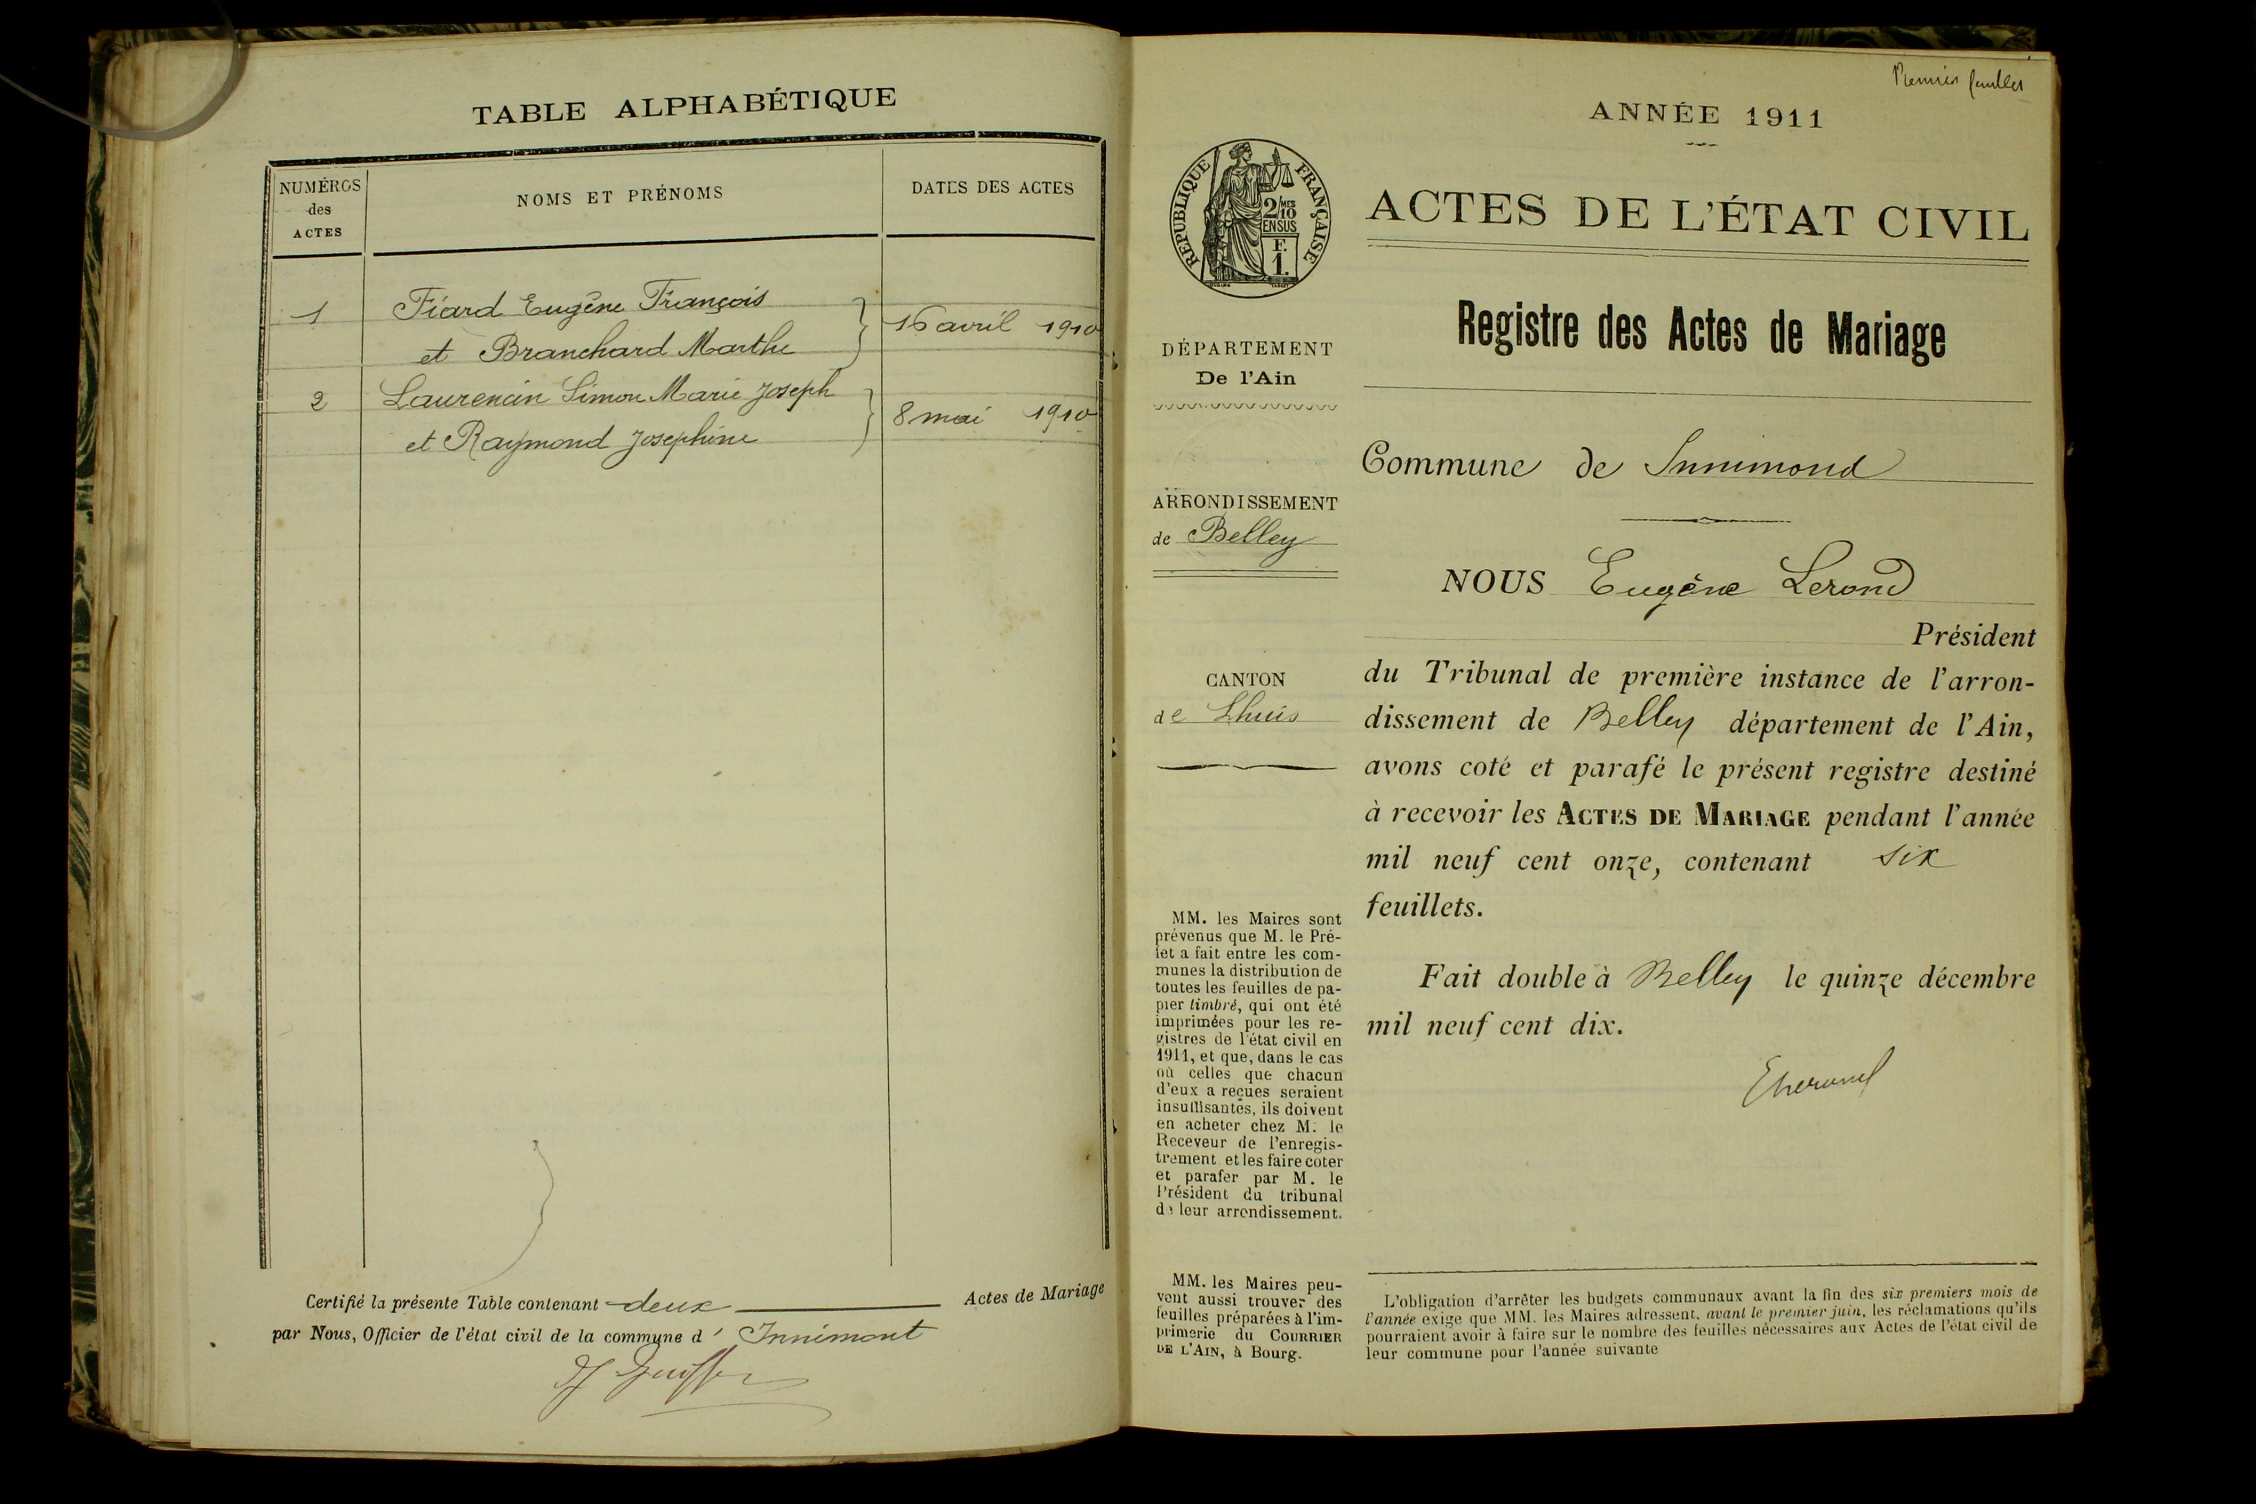 TABLE ALPHABÉTIQUE
NUMÉROS
des
ACTES
NOMS ET PRÉNOMS
DATES DES ACTES
1
Fiard Eugène François
et Branchard Marthe
16 avril 1910
2
Laurencin Simon Marie Joseph
et Raymond Joséphine
8 mai 1910
Certifié la présente Table contenant deux Actes de Mariage
par Nous, Officier de l'état civil de la commune d' Innimont
Premier feuillet
ANNÉE 1911
RÉPUBLIQUE FRANÇAISE
2/10 MES
EN SUS
F.
1.
ACTES DE L'ÉTAT CIVIL
Registre des Actes de Mariage
DÉPARTEMENT
De l'Ain
ARRONDISSEMENT
de Belley
CANTON
de Lhuis
MM. les Maires sont
prévenus que M. le Pré-
fet a fait entre les com-
munes la distribution de
toutes les feuilles de pa-
pier timbré, qui ont été
imprimées pour les re-
gistres de l'état civil en
1911, et que, dans le cas
où celles que chacun
d'eux a reçues seraient
insuffisantes, ils doivent
en acheter chez M. le
Receveur de l'enregis-
trement et les faire coter
et parafer par M. le
Président du tribunal
de leur arrondissement.
MM. les Maires peu-
vent aussi trouver des
feuilles préparées à l'im-
primerie du COURRIER
DE L'AIN, à Bourg.
Commune de Innimond
NOUS Eugène Lerond
Président
du Tribunal de première instance de l'arron-
dissement de Belley département de l'Ain,
avons coté et parafé le présent registre destiné
à recevoir les ACTES DE MARIAGE pendant l'année
mil neuf cent onze, contenant six
feuillets.
Fait double à Belley le quinze décembre
mil neuf cent dix.
L'obligation d'arrêter les budgets communaux avant la fin des six premiers mois de
l'année exige que MM. les Maires adressent, avant le premier juin, les réclamations qu'ils
pourraient avoir à faire sur le nombre des feuilles nécessaires aux Actes de l'état civil de
leur commune pour l'année suivante